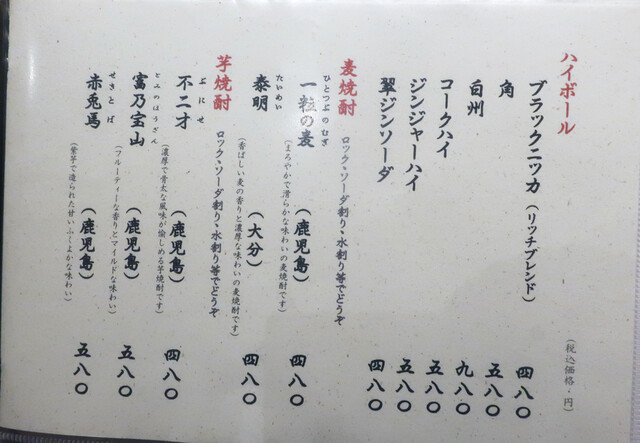 ハイボール
（税込価格・円）
ブラックニッカ（リッチブレンド） 四八〇
角 五八〇
白州 九八〇
コークハイ 五八〇
ジンジャーハイ 五八〇
翠ジンソーダ 四八〇
麦焼酎 ロック、ソーダ割り、水割り等でどうぞ
ひとつぶのむぎ
一粒の麦（鹿児島） 四八〇
（まろやかで滑らかな味わいの麦焼酎です）
たいめい
泰明（大分） 四八〇
（香ばしい麦の香りと濃厚な味わいの麦焼酎です）
芋焼酎 ロック、ソーダ割り、水割り等でどうぞ
ぶにせ
不二才（鹿児島） 四八〇
（濃厚で骨太な風味が愉しめる芋焼酎です）
とみのほうざん
富乃宝山（鹿児島） 五八〇
（フルーティーな香りとマイルドな味わい）
せきとば
赤兎馬（鹿児島） 五八〇
（紫芋で造られた甘いふくよかな味わい）